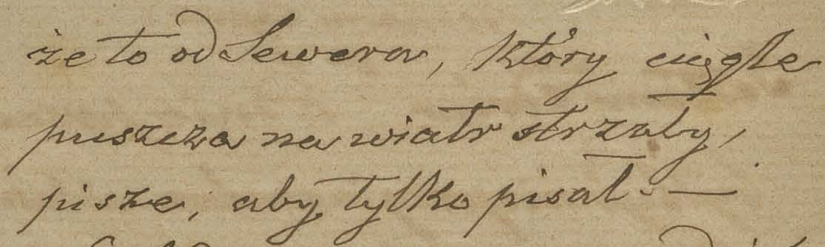 że to od Sewera, który ciągle
puszcza na wiatr strzały,
pisze, aby tylko pisał. —